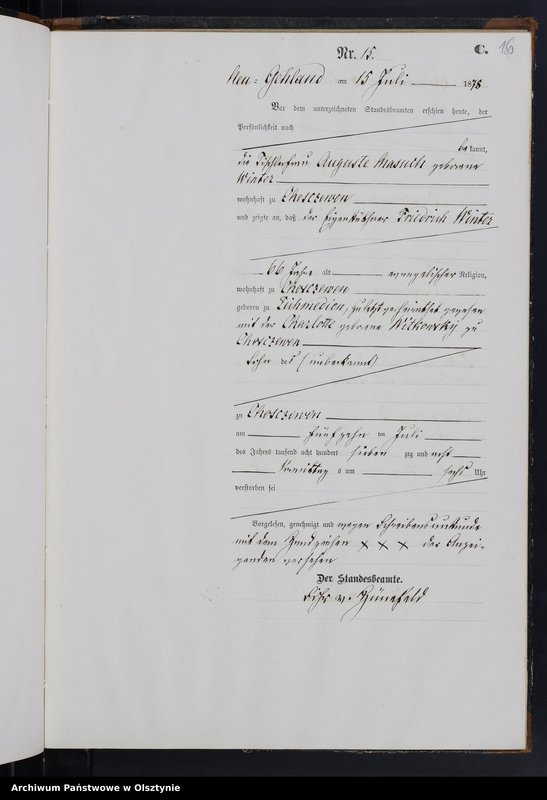 Nr. 15.
C. 16
Neu-Gehland am 15 Juli 1878
Vor dem unterzeichneten Standesbeamten erschien heute, der
Persönlichkeit nach
be kannt,
die Tischlerfrau Auguste Masuch geborene
Winter
wohnhaft zu Choszewen
und zeigte an, daß der Eigenkäthner Friedrich Winter
66 Jahre alt evangelischer Religion,
wohnhaft zu Choszewen
geboren zu zuletzt verheirathet gewesen
mit der Charlotte geborene Wilkowsky zu
Choszewen
Sohn des (unbekannt)
zu Choszewen
am fünfzehn ten Juli
des Jahres tausend acht hundert sieben zig und acht
Vormittag s um sechs Uhr
verstorben sei
Vorgelesen, genehmigt und wegen Schreibensunkunde
mit dem Handzeichen x x x der Anzei-
genden versehen
Der Standesbeamte.
v.
Archiwum Państwowe w Olsztynie